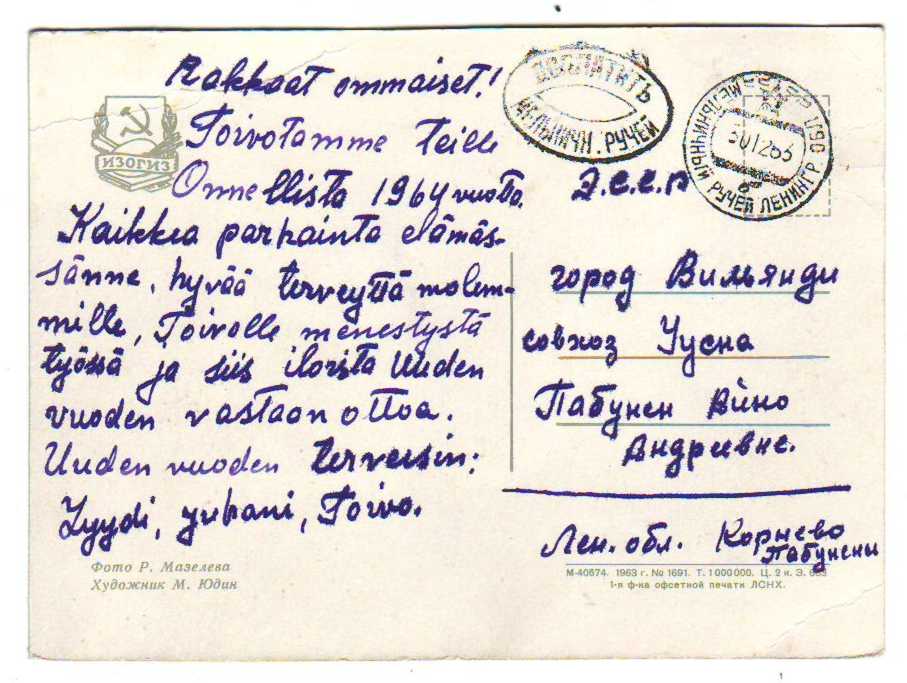 Rakkaat ommaiset!
Toivotamme Teille
Onnellista 1964 vuotta.
Kaikkea parhainta elämäs-
sänne, hyvää terveyttä molem-
mille, Toivolle menestystä
työssä ja siis iloista Uuden
vuoden vastaanottoa.
Uuden vuoden terveisin:
Lyydi, Juhani, Toivo.
ИЗОГИЗ
Фото Р. Мазелева
Художник М. Юдин
ДОПЛАТИТЬ
МЕЛЬНИЧН. РУЧЕЙ
МЕЛЬНИЧНЫЙ РУЧЕЙ ЛЕНИНГР. ОБЛ
301263
Э.С.С.Р
город Вильянди
совхоз Уусна
Пабунен Вйно
Андреевне.
Лен. обл. Корнево
Пабунены
М-40674. 1963 г. № 1691. Т. 1 000 000. Ц. 2 к. З.
1-я ф-ка офсетной печати ЛСНХ.